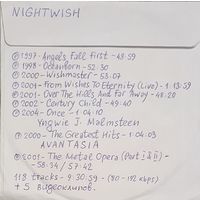 NIGHTWISH
© 1997-Angels Fall First - 48:59
© 1998-Oceanborn - 52:30
© 2000-Wishmaster - 53:07
© 2001-From Wishes To Eternity (Live) - 1:13:59
© 2001-Over The Hills And Far Away - 48:20
© 2002-Century Child - 49:40
© 2004-Once - 1:04:10
Yngwie J. Malmsteen
© 2000-The Greatest Hits - 1:04:09
AVANTASIA
© 2003-The Metal Opera (Part I & II) -
- 58:34 / 57:42
118 tracks - 9:30:59 - (80-192 kbps)
+ 5 видеоклипов.